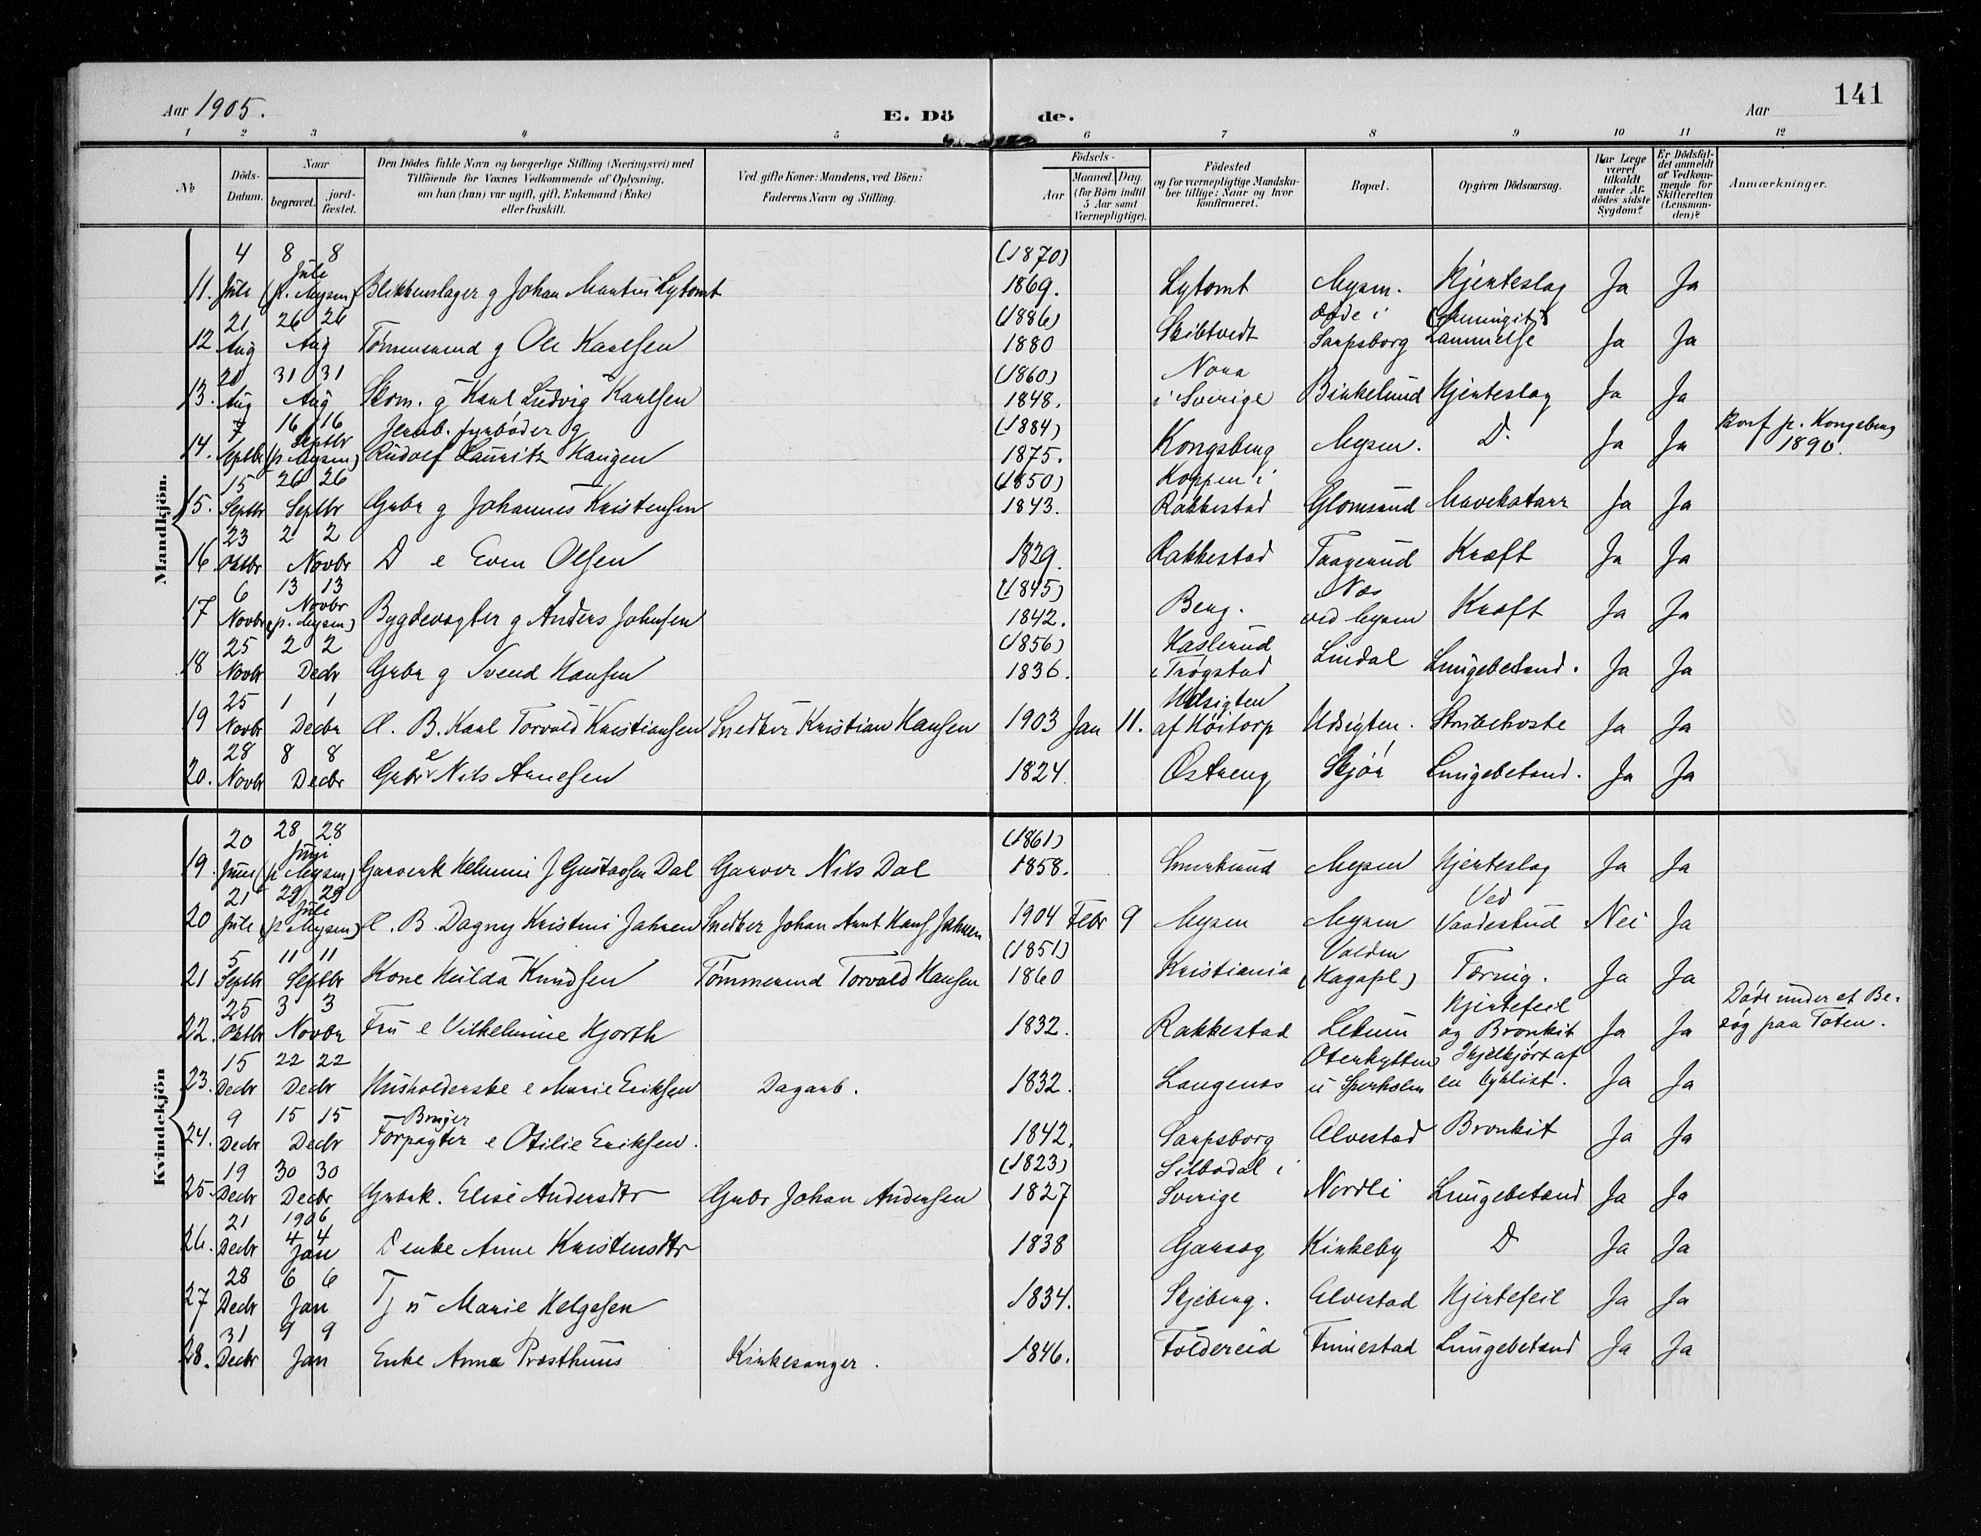 Aar 1905. E. Dö de. Aar 141
1 2 3 4 5 6 7 8 9 10 11 12
No
Döds-Datum.
Naar
begravet. jordfæstet.
Den Dödes fulde Navn og borgerlige Stilling (Næringsvei) med
Tilföiende for Voxnes Vedkommende af Oplysning,
om han (hun) var ugift, gift, Enkemand (Enke)
eller fraskilt.
Ved gifte Koner: Mandens, ved Börn:
Faderens Navn og Stilling.
Födsels-
Aar Maaned. Dag.
(for Börn indtil
5 Aar samt
Værnepligtige).
Födested
og for værnepligtige Mandskaber tillige: Naar og hvor
konfirmeret.
Bopæl.
Opgiven Dödsaarsag.
Har Læge
været
tilkaldt
under Afdödes sidste
Sygdom?
Er Dödsfaldet anmeldt
af Vedkommende for
Skifteretten
(Lensmanden)?
Anmærkninger.
Mandkjön.
4 8 8 (1870)
Juli
11. Juli (p. Mysen) Blikkenslager g Johan Martin Lytomt 1869. Lytomt Mysen. Hjerteslag Ja Ja
21 26 26 (1886) Døde i (Meningitis)
12 Aug Aug Tømmermand g Ole Karlsen 1880 Skibtvedt Sarpsborg Lammelse Ja Ja
31 31 (1860) Nora
13. Aug Aug Skom. g Karl Ludvig Karlsen 1848. i Sverige Birkelund Hjerteslag Ja Ja
7 16 16 Septbr Jernb. fyrbøder g (1884) Konf p. Kongsberg
14. Septbr (p Mysen) Rudolf Lauritz Haugen 1875. Kongsberg Mysen. D. Ja Ja 1890.
15 26 26 (1850) Koppen i
15. Septbr Septbr Gmbr g Johannes Kristensen 1843. Rakkestad Glomsrud Mavekatarr Ja Ja
23 2 2
16 Oktbr Novbr D e Even Olsen 1829. Rakkestad Traagerud Kræft Ja Ja
6 13 13 Novbr (1845) Næs
17 Novbr (p. Mysen) Bygdevægter g Anders Johnsen 1842. Berg. ved Mysen Kræft Ja Ja
25 2 2 (1856) Haslerud
18 Novbr Decbr Gmbr g Svend Hansen 1836. i Trøgstad Lindal Lungebetænd. Ja Ja
25 1 1 Udsigten
19 Novbr Decbr Æ. B. Karl Torvald Kristiansen Snedker Kristian Hansen 1903 Jan 11. af Höitorp Udsigten. Strubehoste Ja Ja
28 8 8
20. Novbr Decbr Gmbr e Nils Arnesen 1824. Østreng Skjør Lungebetænd. Ja Ja
Kvindekjön
20 28 28 Juni (1861)
19. Juni (p Mysen) Garverk Helmine J Gustavsen Dal Garver Nils Dal 1858. Smerkrud Mysen Hjerteslag Ja Ja
21 29 29 Juli Ved
20 Juli (p. Mysen) Æ. B. Dagny Kristine Jahren Snedker Johan Arnt Hans Jahren 1904 Febr 9 Mysen Mysen Vaadeskud Nei Ja
5 11 11 (1851) Volden
21 Septbr Septbr Kone Hulda Knudsen Tømmermd Torvald Hansen 1860 Kristiania (Hagapl) Tæring. Ja Ja
25 3 3 Hjertefeil Døde under et Be-
22. Oktbr Novbr Fru e Vilhelmine Hjorth 1832. Rakkestad Lekum og Bronkit Ja Ja søg paa Toten.
15 22 22 Oterhytten Ihjelkjørt af
23. Decbr Decbr Husholderske e Marie Eriksen Dagarb. 1832. Langenæs u Sperholm en Cyklist. Ja Ja
9 15 15 Bruger
24. Decbr Decbr Forpagter e Otilie Eriksen. 1842. Sarpsborg Alvestad Bronkit Ja Ja
19 30 30 (1823) Silbodal i
25. Decbr Decbr Gmbrk. Elise Andersdtr Gmbr Johan Andersen 1827 Sverige Nordli Lungebetænd Ja Ja
21 1906 4 4
26. Decbr Jan D enke Anne Kristensdtr 1838 Garseg Kirkeby D Ja Ja
28 6 6
27 Decbr Jan Tj u Marie Helgesen 1834. Skjeberg. Alvestad Hjertefeil Ja Ja
31 9 9
28. Decbr Jan Enke Anna Præsthuus Kirkesanger. 1846. Foldereid Finnestad Lungebetænd Ja Ja